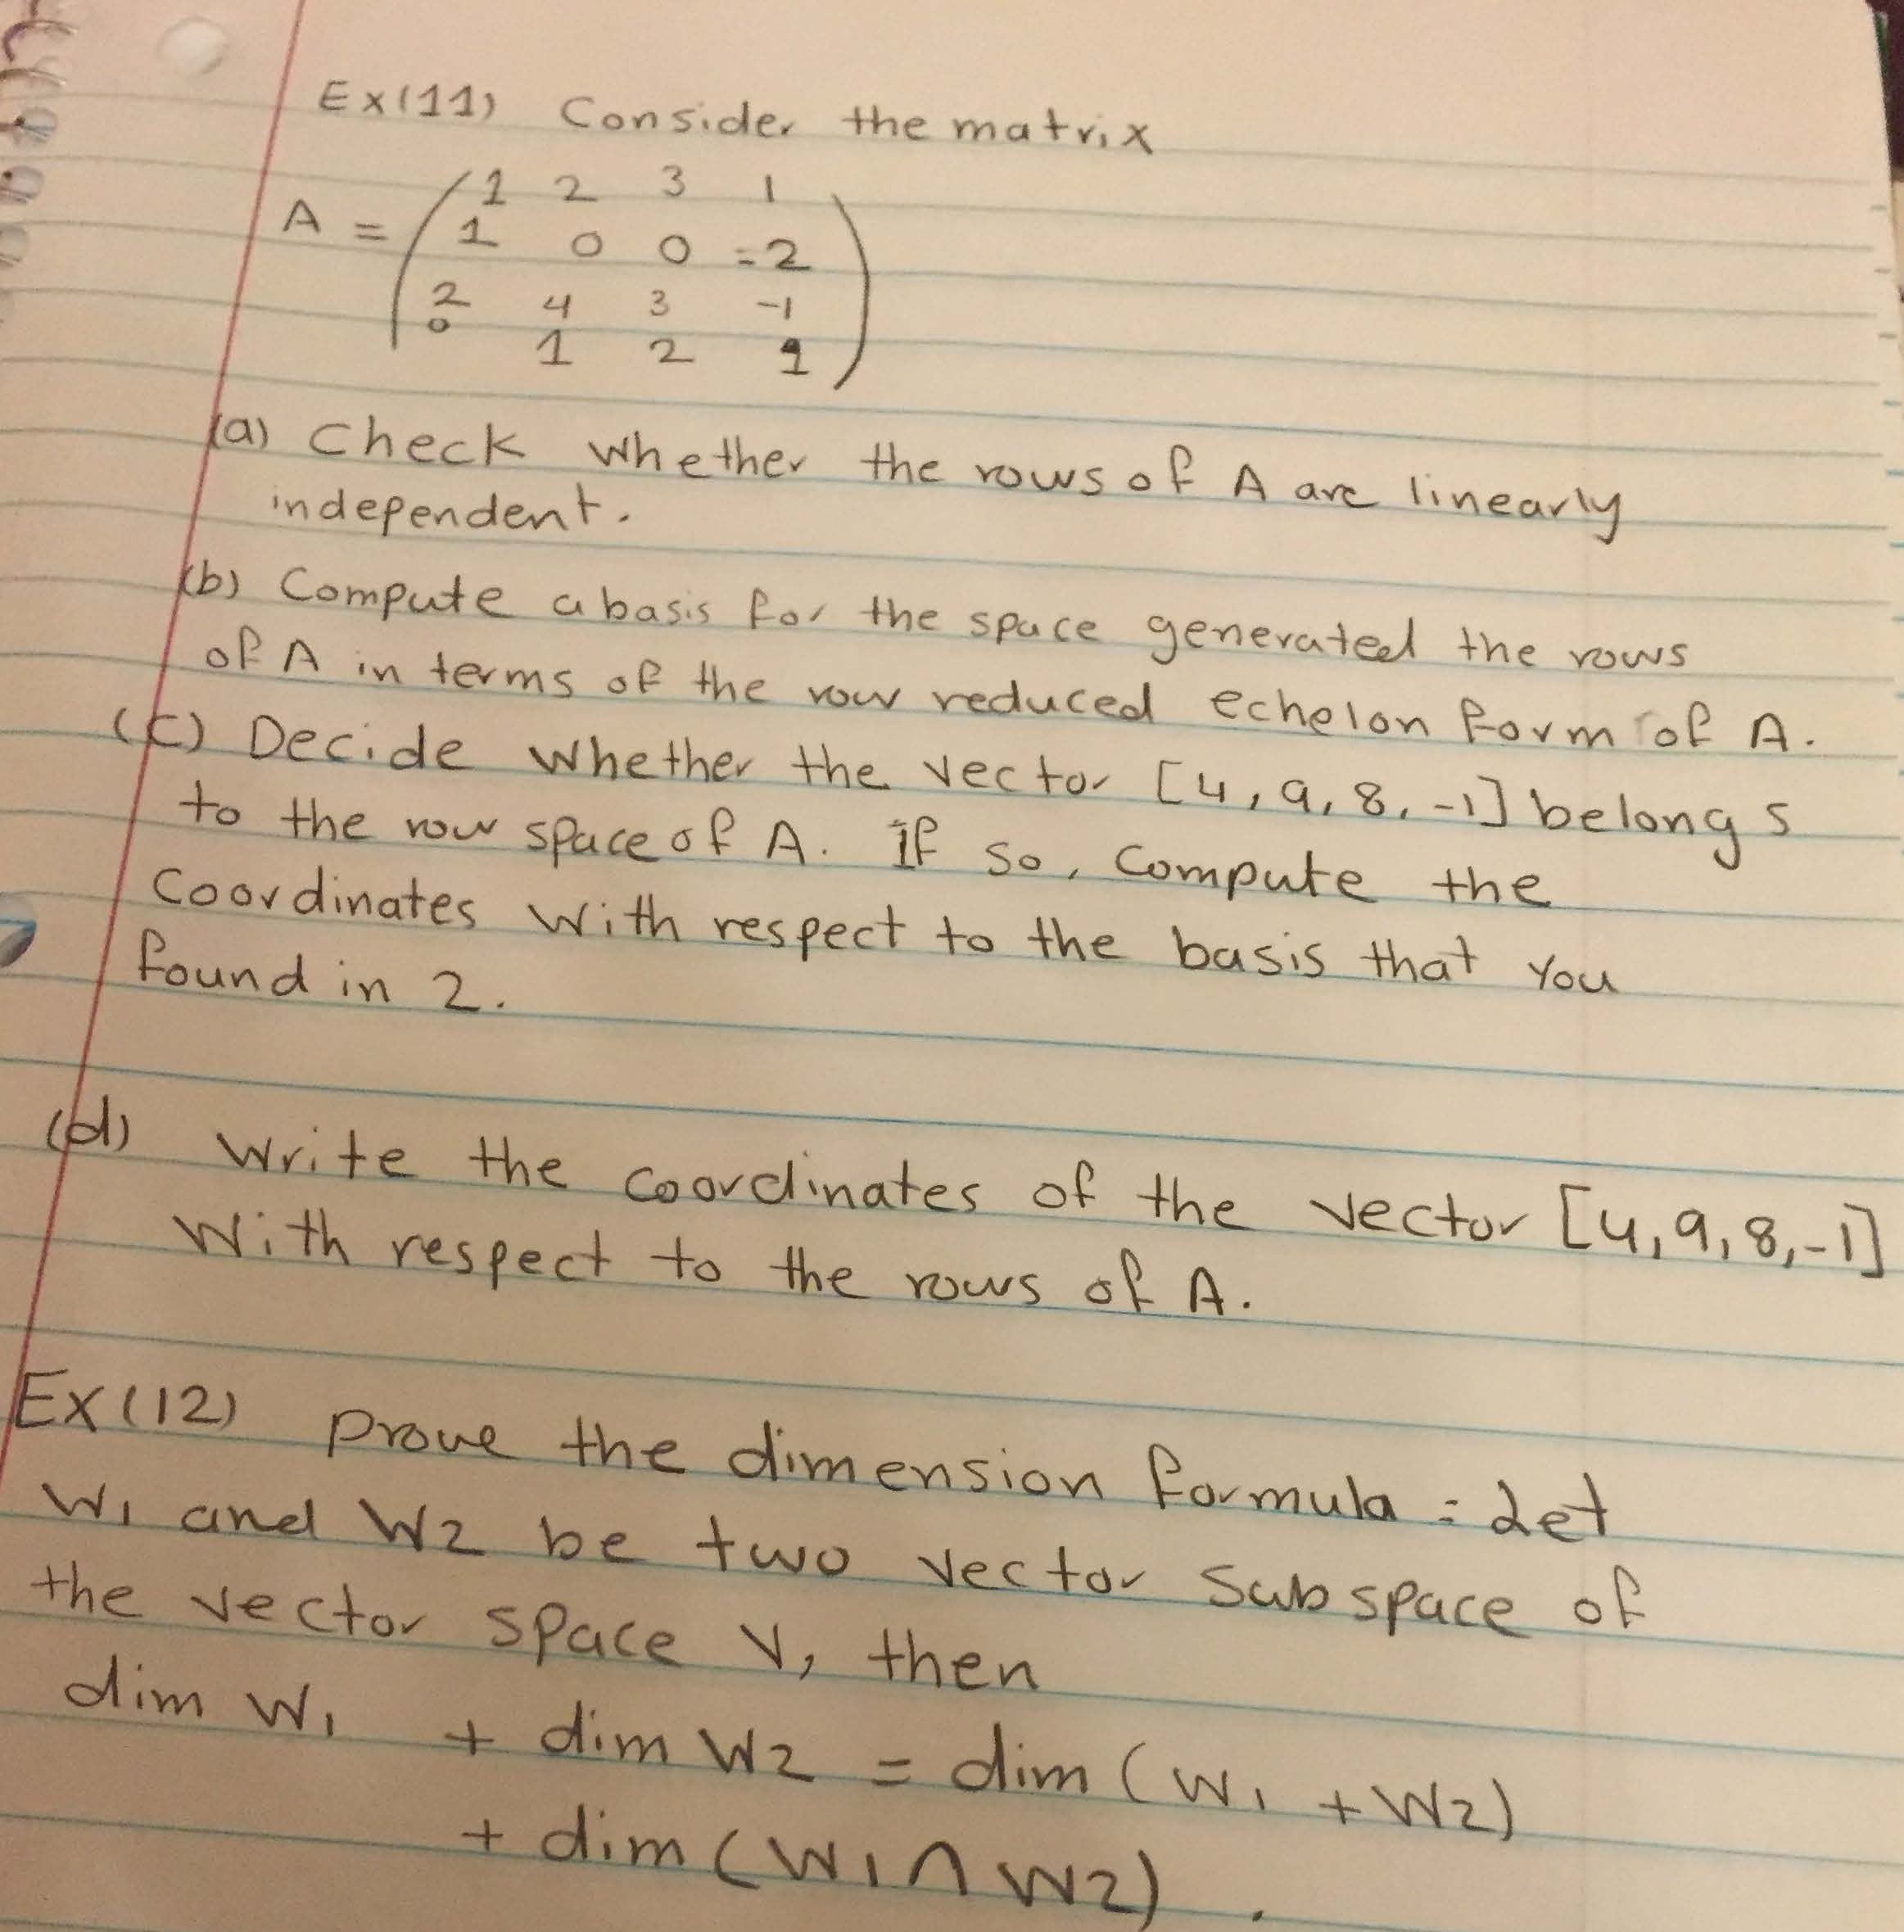 Ex(11) Consider the matrix
A = ( 1 2 3 1
1 0 0 -2
2 4 3 -1
0 1 2 1 )
(a) Check whether the rows of A are linearly
independent.
(b) Compute a basis for the space generated the rows
of A in terms of the row reduced echelon form of A.
(C) Decide whether the vector [4, 9, 8, -1] belongs
to the row space of A. If so, compute the
Coordinates with respect to the basis that you
found in 2.
(d) Write the coordinates of the vector [4, 9, 8, -1]
With respect to the rows of A.
Ex(12) Prove the dimension formula: Let
W1 and W2 be two vector subspace of
the vector space V, then
dim W1 + dim W2 = dim (W1 + W2)
+ dim (W1 ∩ W2).